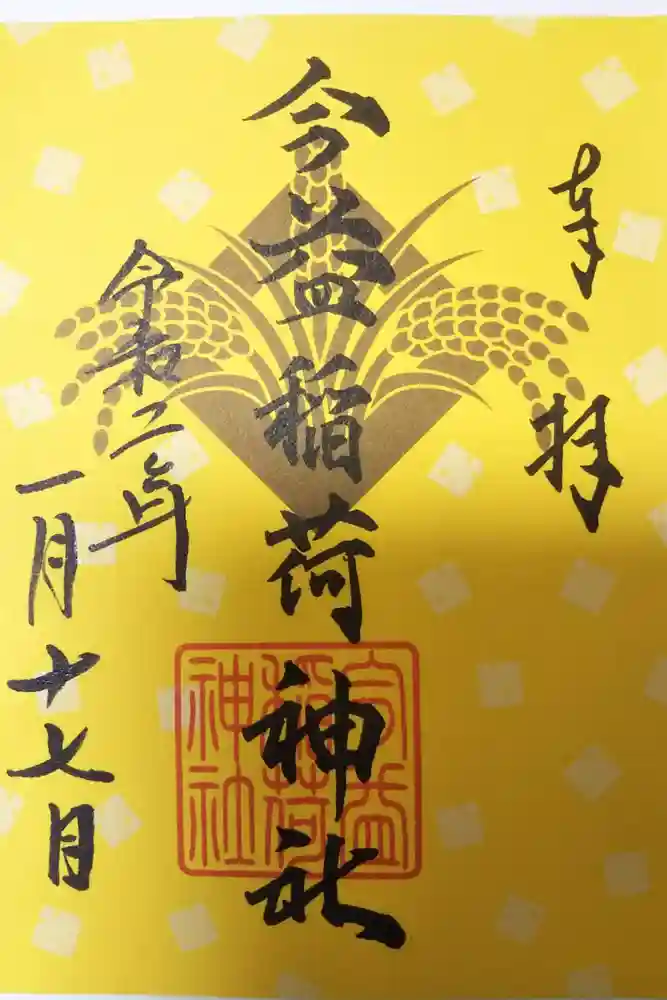 奉拝
今益稲荷神社
令和二年
一月十七日
益
稲荷
神社